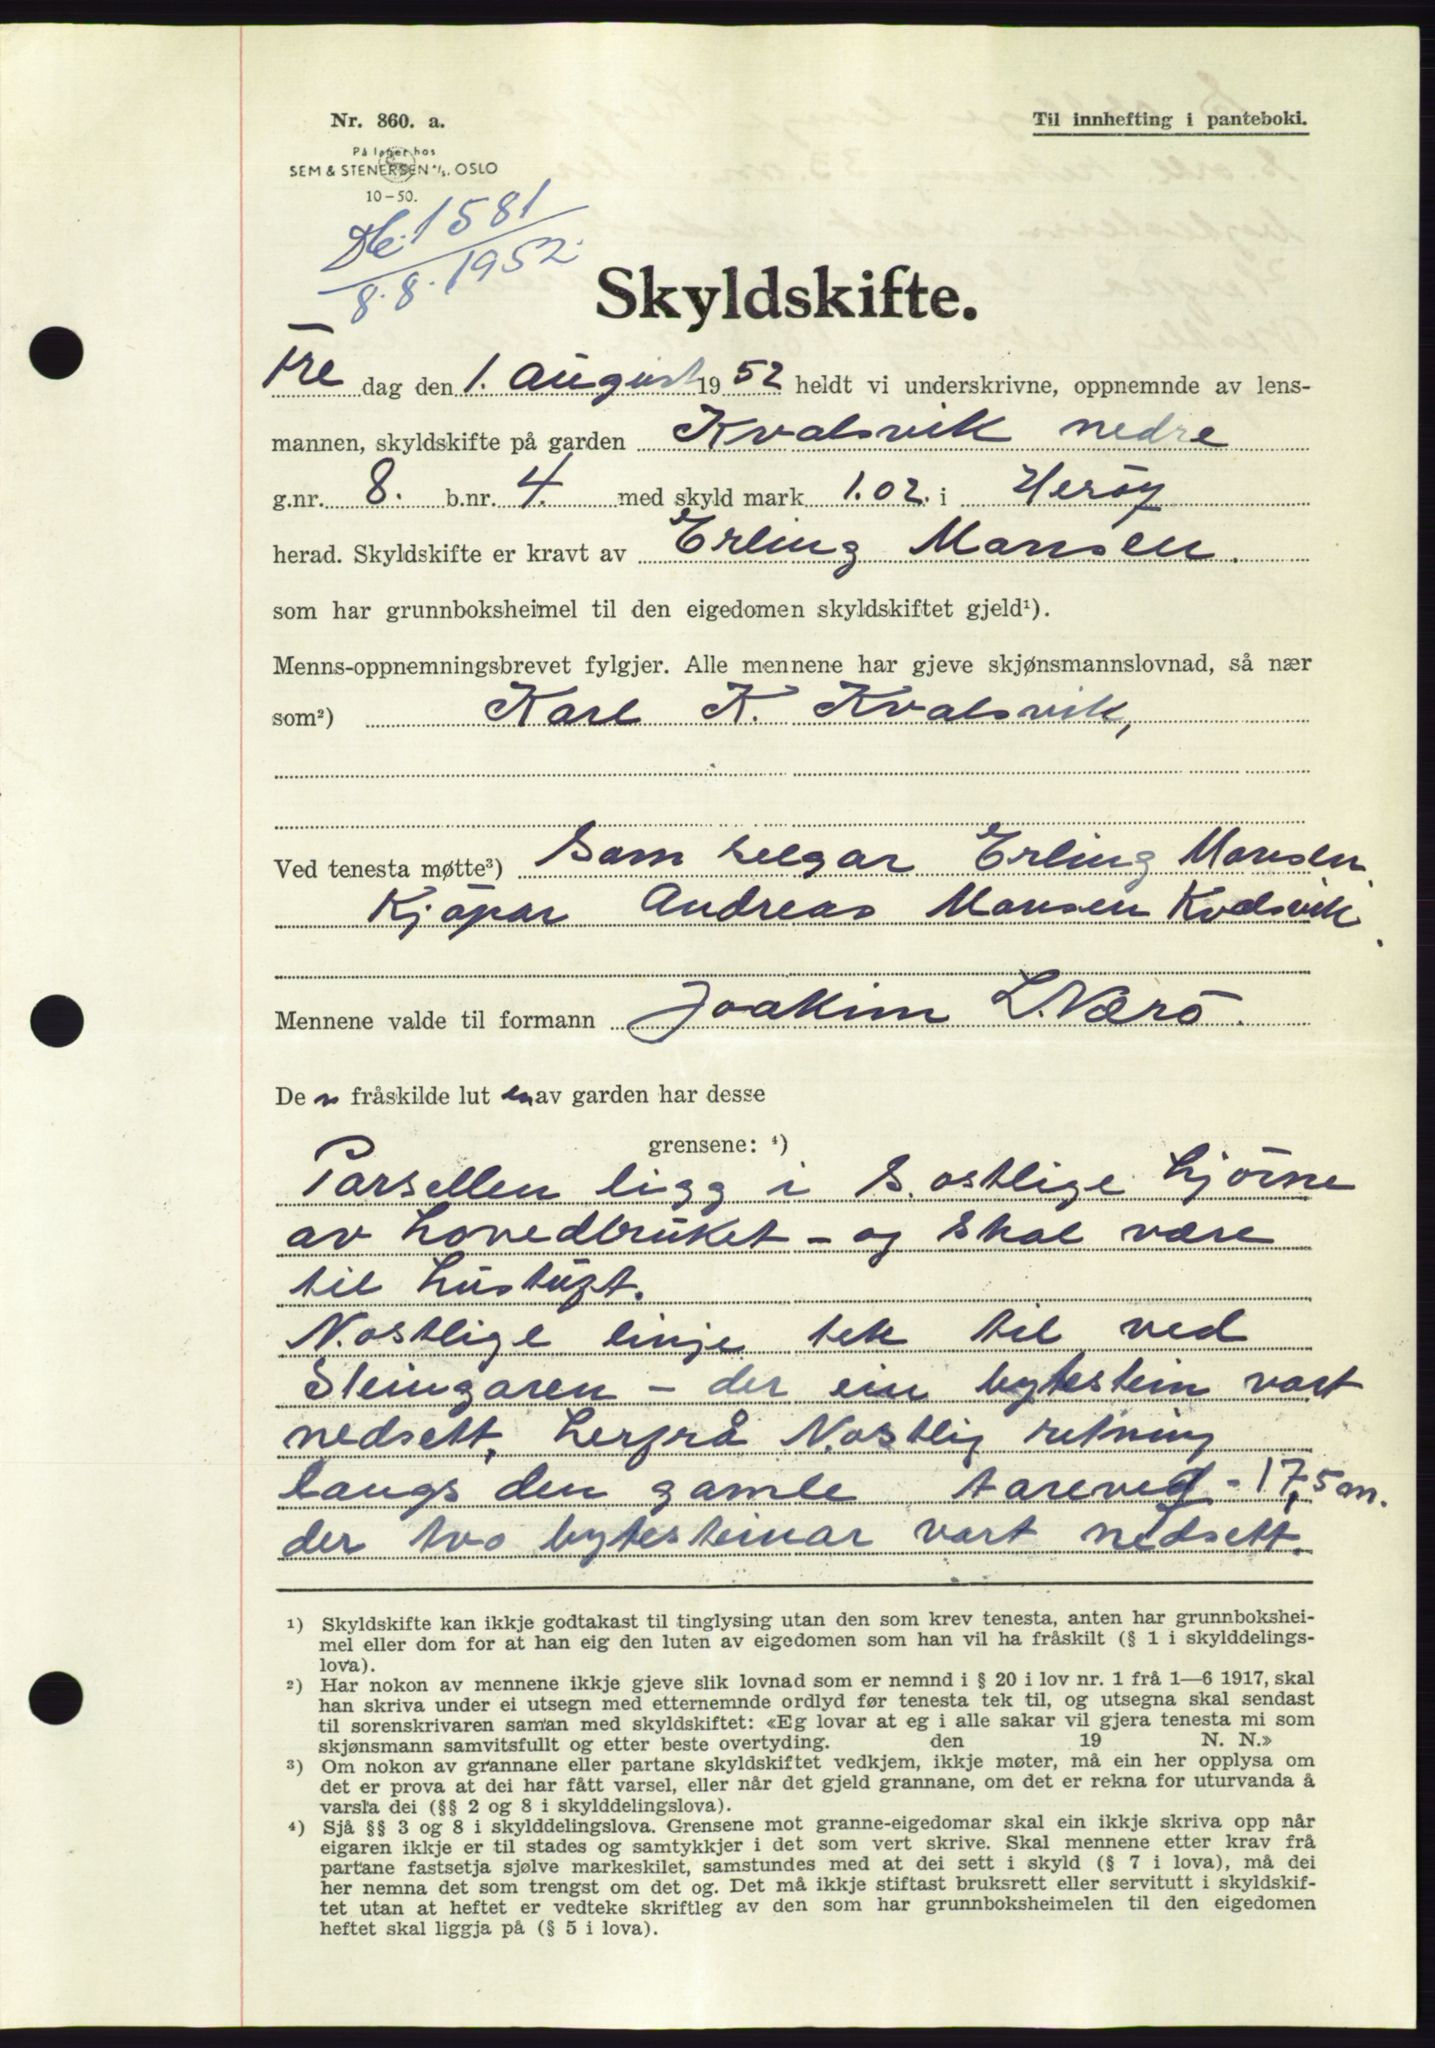 Nr. 860. a.
Til innhefting i panteboki.
På lager hos
SEM & STENERSEN A/S, OSLO
10-50.
Db. 1581
8.8.1952.
Skyldskifte.
Fre dag den 1. august 1952 heldt vi underskrivne, oppnemnde av lens-
mannen, skyldskifte på garden Kvalsvik nedre
g.nr. 8. b.nr. 4. med skyld mark 1.02. i Herøy
herad. Skyldskifte er kravt av Erling Monsen.
som har grunnboksheimel til den eigedomen skyldskiftet gjeld¹).
Menns-oppnemningsbrevet fylgjer. Alle mennene har gjeve skjønsmannslovnad, så nær
som²) Karl K. Kvalsvik,
Ved tenesta møtte³) Som selgar Erling Monsen
Kjøpar Andreas Monsen Kvalsvik.
Mennene valde til formann Joakim L. Nærö.
De n fråskilde lut en av garden har desse
grensene: ⁴)
Parsellen ligg i S. ostlige hjörne
av hovedbruket - og skal være
til hustuft.
N. ostlige linje tek til ved
Steingaren - der ein bytestein vart
nedsett, herfrå N. ostlig retning
langs den gamle tareveg - 17,5 m.
der tvo bytesteinar vart nedsett.
¹) Skyldskifte kan ikkje godtakast til tinglysing utan den som krev tenesta, anten har grunnbokshei-
mel eller dom for at han eig den luten av eigedomen som han vil ha fråskilt (§ 1 i skylddelings-
lova).
²) Har nokon av mennene ikkje gjeve slik lovnad som er nemnd i § 20 i lov nr. 1 frå 1—6 1917, skal
han skriva under ei utsegn med etternemnde ordlyd før tenesta tek til, og utsegna skal sendast
til sorenskrivaren saman med skyldskiftet: «Eg lovar at eg i alle sakar vil gjera tenesta mi som
skjønsmann samvitsfullt og etter beste overtyding. den 19 N. N.»
³) Om nokon av grannane eller partane skyldskiftet vedkjem, ikkje møter, må ein her opplysa om
det er prova at dei har fått varsel, eller når det gjeld grannane, om det er rekna for uturvanda å
varsla dei (§§ 2 og 8 i skylddelingslova).
⁴) Sjå §§ 3 og 8 i skylddelingslova. Grensene mot granne-eigedomar skal ein ikkje skriva opp når
eigaren ikkje er til stades og samtykkjer i det som vert skrive. Skal mennene etter krav frå
partane fastsetja sjølve markeskilet, samstundes med at dei sett i skyld (§ 7 i lova), må dei
her nemna det som trengst om det og. Det må ikkje stiftast bruksrett eller servitutt i skyldskif-
tet utan at heftet er vedteke skriftleg av den som har grunnboksheimelen til den eigedomen
heftet skal liggja på (§ 5 i lova).